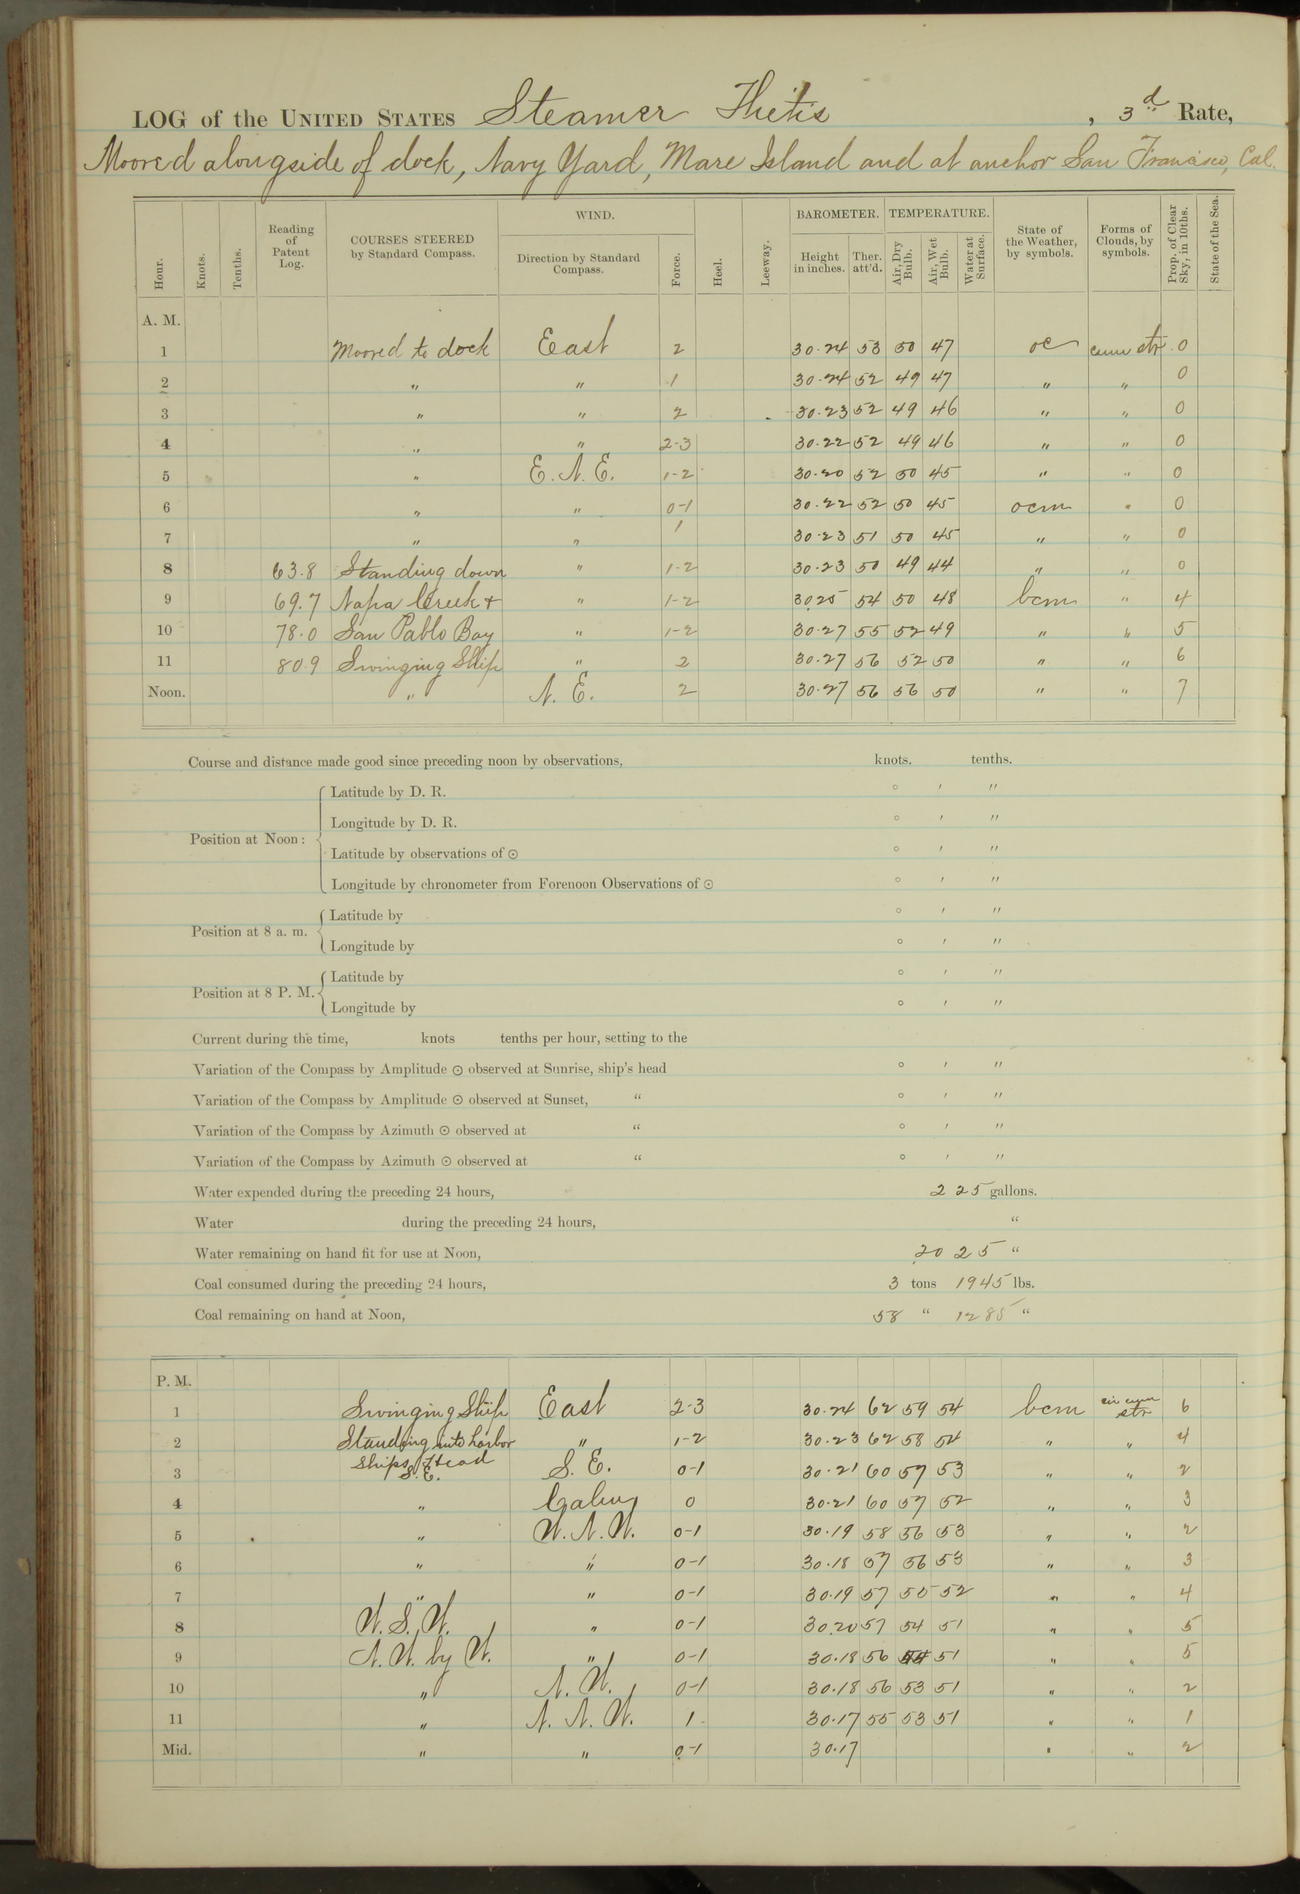 LOG of the UNITED STATES Steamer Thetis , 3d Rate,
Moored alongside of dock, Navy Yard, Mare Island and at anchor San Francisco, Cal.
Hour. Knots. Tenths. Reading of Patent Log. COURSES STEERED by Standard Compass. WIND. Direction by Standard Compass. Force. Heel. Leeway. BAROMETER. Height in inches. Ther. att'd. TEMPERATURE. Air, Dry Bulb. Air, Wet Bulb. Water at Surface. State of the Weather, by symbols. Forms of Clouds, by symbols. Prop. of Clear Sky, in 10ths. State of the Sea.
A. M.
1 Moored to dock East 2 30.24 53 50 47 oc cum str. 0
2 " " 1 30.24 52 49 47 " " 0
3 " " 2 30.23 52 49 46 " " 0
4 " " 2-3 30.22 52 49 46 " " 0
5 " E. N. E. 1-2 30.20 52 50 45 " " 0
6 " " 0-1 30.22 52 50 45 ocm " 0
7 " " 1 30.23 51 50 45 " " 0
8 63.8 Standing down " 1-2 30.23 50 49 44 " " 0
9 69.7 Napa Creek + " 1-2 30.25 54 50 48 bcm " 4
10 78.0 San Pablo Bay " 1-2 30.27 55 52 49 " " 5
11 80.9 Swinging Ship " 2 30.27 56 52 50 " " 6
Noon. " N. E. 2 30.27 56 56 50 " " 7
Course and distance made good since preceding noon by observations, knots. tenths.
Position at Noon:
Latitude by D. R. ° ′ ″
Longitude by D. R. ° ′ ″
Latitude by observations of ☉ ° ′ ″
Longitude by chronometer from Forenoon Observations of ☉ ° ′ ″
Position at 8 a. m.
Latitude by ° ′ ″
Longitude by ° ′ ″
Position at 8 P. M.
Latitude by ° ′ ″
Longitude by ° ′ ″
Current during the time, knots tenths per hour, setting to the
Variation of the Compass by Amplitude ☉ observed at Sunrise, ship's head ° ′ ″
Variation of the Compass by Amplitude ☉ observed at Sunset, " ° ′ ″
Variation of the Compass by Azimuth ☉ observed at " ° ′ ″
Variation of the Compass by Azimuth ☉ observed at " ° ′ ″
Water expended during the preceding 24 hours, 225 gallons.
Water during the preceding 24 hours, "
Water remaining on hand fit for use at Noon, 2025 "
Coal consumed during the preceding 24 hours, 3 tons 1945 lbs.
Coal remaining on hand at Noon, 58 " 1285 "
P. M.
1 Swinging Ship East 2-3 30.24 62 59 54 bcm cir cum str 6
2 Standing into harbor " 1-2 30.23 62 58 54 " " 4
3 Ships Head S. E. S. E. 0-1 30.21 60 57 53 " " 2
4 " Calm 0 30.21 60 57 52 " " 3
5 " W. N. W. 0-1 30.19 58 56 53 " " 2
6 " " 0-1 30.18 57 56 53 " " 3
7 " " 0-1 30.19 57 55 52 " " 4
8 W. S. W. " 0-1 30.20 57 54 51 " " 5
9 N. W. by W. " 0-1 30.18 56 51 " " 5
10 " N. W. 0-1 30.18 56 53 51 " " 2
11 " N. N. W. 1 30.17 55 53 51 " " 1
Mid. " " 0-1 30.17 " " 2